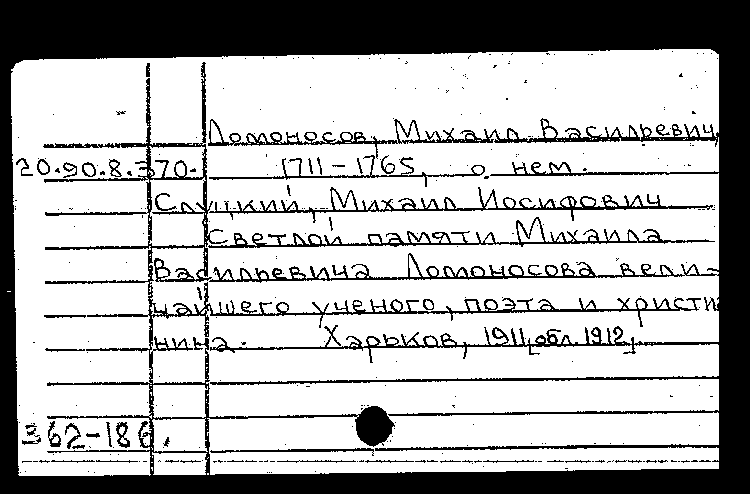 Ломоносов, Михаил Васильевич,
20.90.8.370. 1711-1765, о нем.
Слуцкий, Михаил Иосифович
Светлой памяти Михаила
Васильевича Ломоносова вели-
чайшего ученого, поэта и христи
нина. Харьков, 1911 [обл. 1912].
362-186.